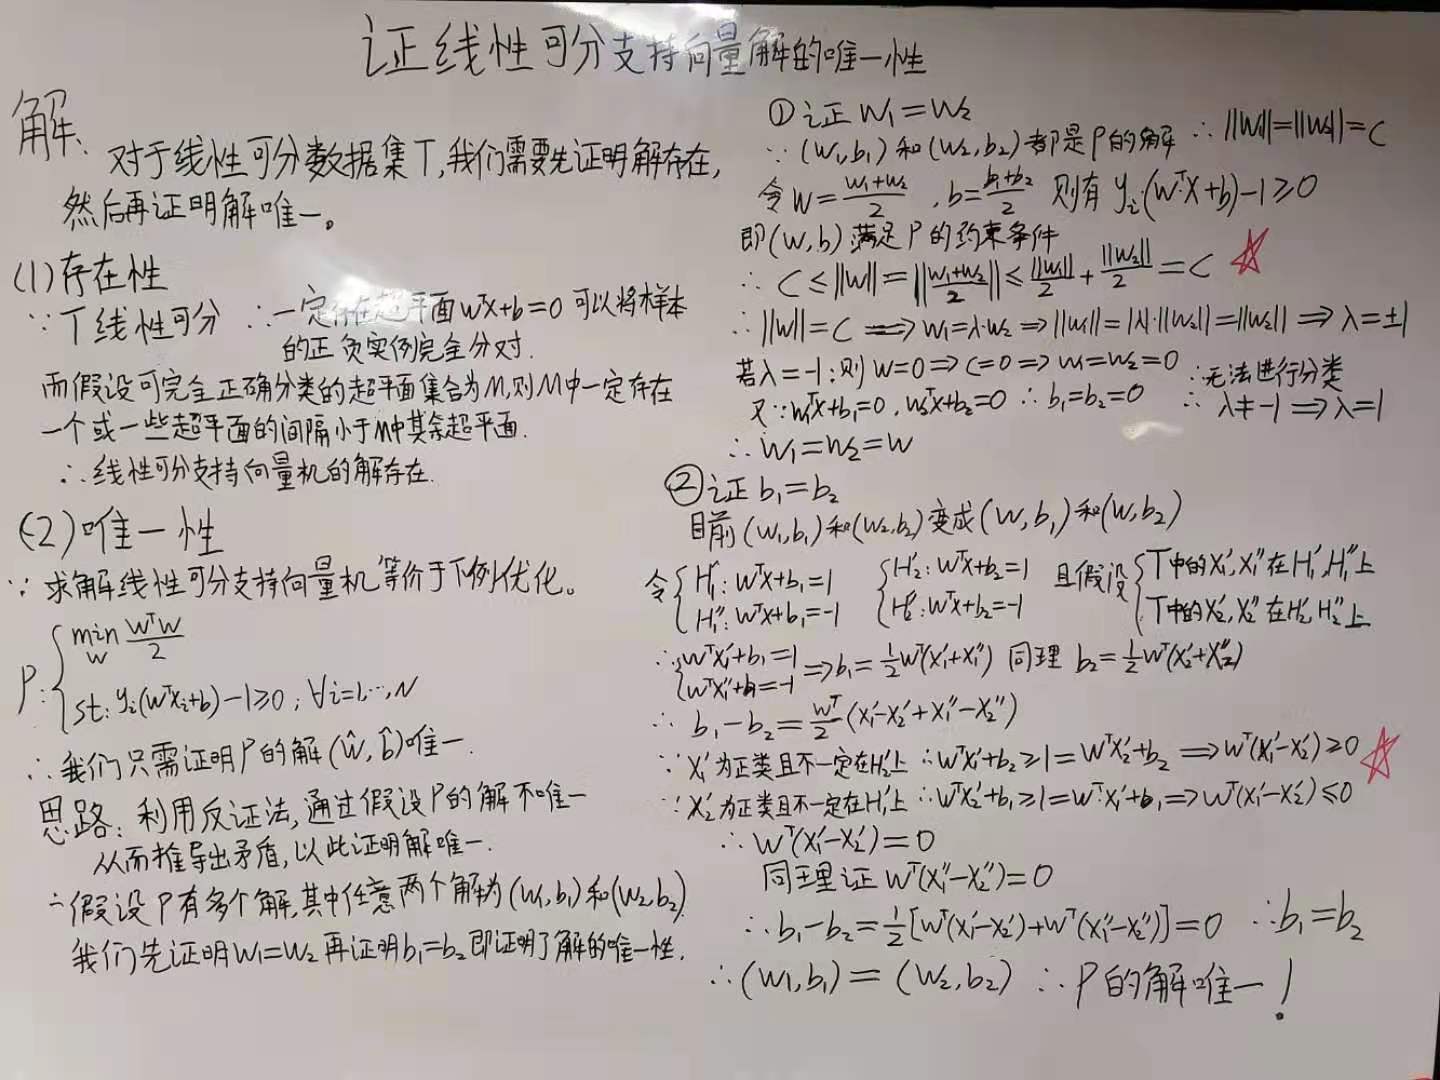 证线性可分支持向量解的唯一性
解、
对于线性可分数据集T,我们需要先证明解存在,
然后再证明解唯一。
(1)存在性
∵ T线性可分 ∴一定存在超平面wᵀx+b=0 可以将样本
的正负实例完全分对.
而假设可完全正确分类的超平面集合为M,则M中一定存在
一个或一些超平面的间隔小于M中其余超平面.
∴线性可分支持向量机的解存在.
(2)唯一性
∵ 求解线性可分支持向量机等价于下例优化。
P: { min_w wᵀw/2
st: yᵢ(wᵀxᵢ+b)-1≥0; ∀i=1,…,N
∴我们只需证明P的解(ŵ,b̂)唯一.
思路: 利用反证法,通过假设P的解不唯一
从而推导出矛盾,以此证明解唯一.
∴假设P有多个解,其中任意两个解为(w₁,b₁)和(w₂,b₂).
我们先证明w₁=w₂再证明b₁=b₂即证明了解的唯一性.
①证 w₁=w₂
∵ (w₁,b₁)和(w₂,b₂)都是P的解 ∴ ||w₁||=||w₂||=C
令w=(w₁+w₂)/2 , b=(b₁+b₂)/2 则有 yᵢ(wᵀ·x+b)-1≥0
即(w,b)满足P的约束条件
∴ C≤||w||=||(w₁+w₂)/2||≤||w₁||/2+||w₂||/2=C ☆
∴ ||w||=C ⟹ w₁=λ·w₂ ⟹ ||w₁||=|λ|·||w₂||=||w₂|| ⟹ λ=±1
若λ=-1:则 w=0⟹C=0⟹w₁=w₂=0 ∴无法进行分类
又∵w₁ᵀx+b₁=0, w₂ᵀx+b₂=0 ∴ b₁=b₂=0 ∴ λ≠-1⟹λ=1
∴ w₁=w₂=w
②证 b₁=b₂
目前(w₁,b₁)和(w₂,b₂)变成(w,b₁)和(w,b₂)
令{H₁′: wᵀx+b₁=1 {H₂′: wᵀx+b₂=1 且假设{T中的x₁′,x₁″在H₁′,H₁″上
H₁″: wᵀx+b₁=-1 H₂″: wᵀx+b₂=-1 T中的x₂′,x₂″在H₂′,H₂″上
∴{wᵀx₁′+b₁=1 ⟹b₁=½wᵀ(x₁′+x₁″) 同理 b₂=½wᵀ(x₂′+x₂″)
wᵀx₁″+b₁=-1
∴ b₁-b₂=wᵀ/2(x₁′-x₂′+x₁″-x₂″)
∵ x₁′为正类且不一定在H₂′上 ∴wᵀx₁′+b₂≥1=wᵀx₂′+b₂ ⟹wᵀ(x₁′-x₂′)≥0 ☆
∵ x₂′为正类且不一定在H₁′上 ∴wᵀx₂′+b₁≥1=wᵀ·x₁′+b₁⟹wᵀ(x₁′-x₂′)≤0
∴ wᵀ(x₁′-x₂′)=0
同理证 wᵀ(x₁″-x₂″)=0
∴ b₁-b₂=½[wᵀ(x₁′-x₂′)+wᵀ(x₁″-x₂″)]=0 ∴b₁=b₂
∴(w₁,b₁)=(w₂,b₂) ∴ P的解唯一!